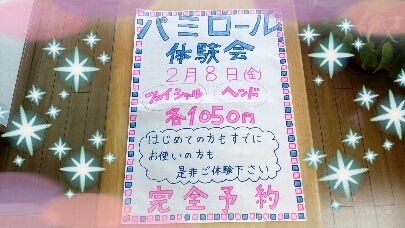 パミロール
体験会
2月8日(金)
フェイシャル ヘッド
各1050円
はじめての方もすでに
お使いの方も
是非ご体験下さい
完全予約